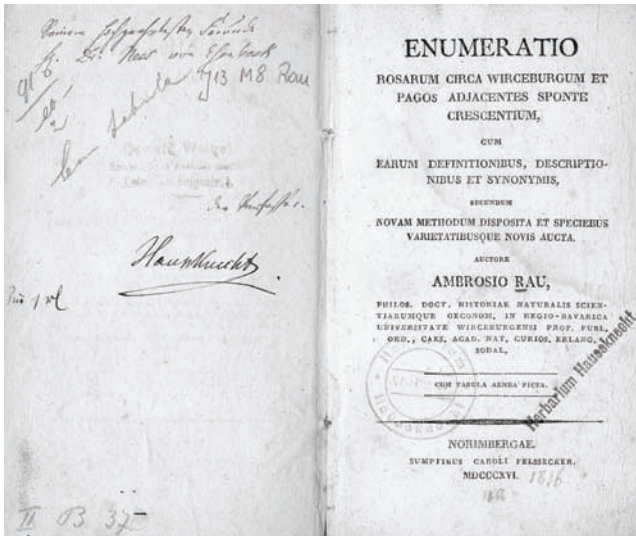 Seinem hochgeehrtesten Freunde
H. Dr. Nees von Esenbeck
Cum tabula
J13 M8 Rau
der Verfasser.
Haussknecht
II B 37
ENUMERATIO
ROSARUM CIRCA WIRCEBURGUM ET
PAGOS ADJACENTES SPONTE
CRESCENTIUM,
CUM
EARUM DEFINITIONIBUS, DESCRIPTIO-
NIBUS ET SYNONYMIS,
SECUNDUM
NOVAM METHODUM DISPOSITA ET SPECIEBUS
VARIETATIBUSQUE NOVIS AUCTA.
AUCTORE
AMBROSIO RAU,
PHILOS. DOCT. HISTORIAE NATURALIS SCIEN-
TIARUMQUE OECONOM. IN REGIO-BAVARICA
UNIVERSITATE WIRCEBURGENSI PROF. PUBL.
ORD., CAES. ACAD. NAT. CURIOS. ERLANG.
SODAL.
CUM TABULA AENEA PICTA.
Herbarium Haussknecht
NORIMBERGAE.
SUMPTIBUS CAROLI FELSSECKER.
MDCCCXVI.
1816